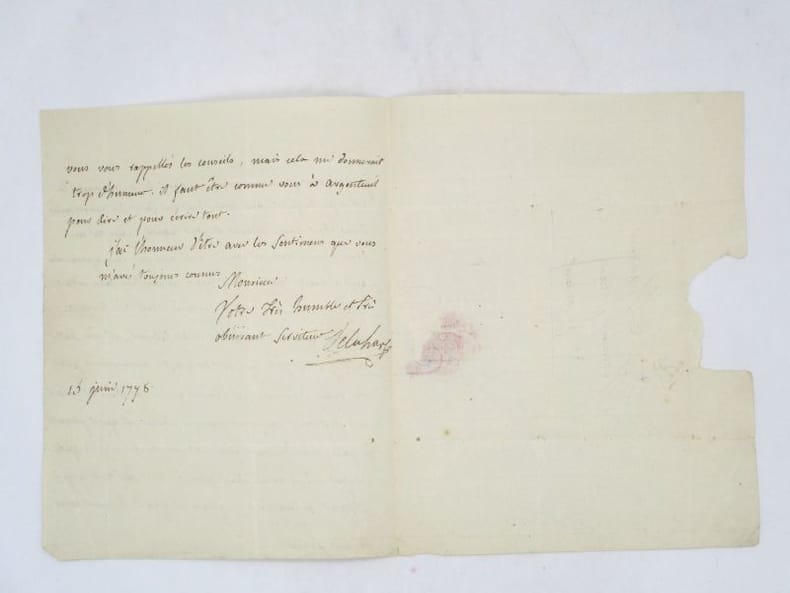 vous vous rappellés les conseils, mais cela me donnerait
trop d'humeur. il faut être comme vous à argenteuil
pour dire et pour écrire tout.
j'ai l'honneur d'être avec les sentimens que vous
m'avés toujours connus
Monsieur
Votre très humble et très
obéissant serviteur Delaharpe
15 juin 1778